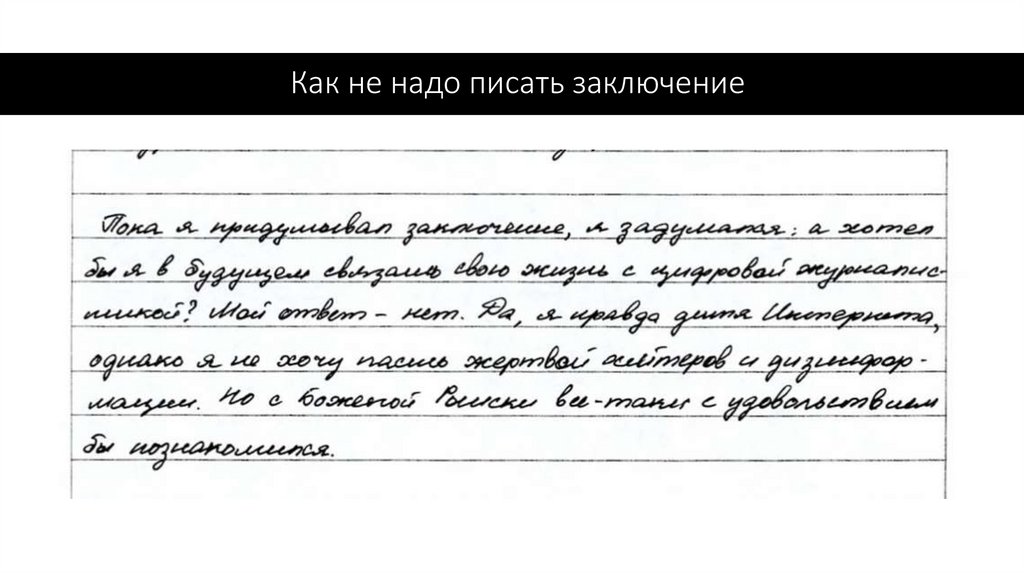 Как не надо писать заключение
Пока я придумывал заключение, я задумался: а хотел
бы я в будущем связать свою жизнь с цифровой журналис-
тикой? Мой ответ – нет. Да, я правда дитя Интернета,
однако я не хочу пасть жертвой хейтеров и дизинфор-
мации. Но с Боженой Рынски все-таки с удовольствием
бы познакомился.